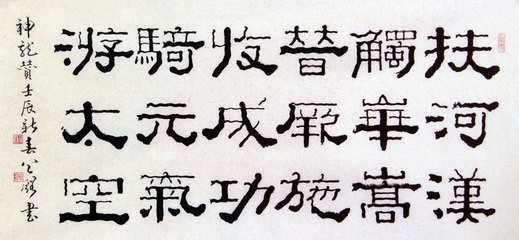 扶河漢
觸華嵩
普厥施
收成功
騎元氣
游太空
神龍贊壬辰新春公書